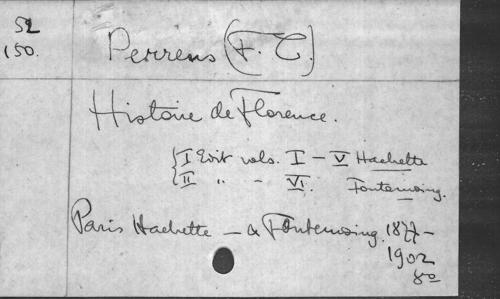 52
150.
Perrens (F. T.)
Histoire de Florence.
I Edit vols. I - V Hachette
II " - VI. Fontemoing.
Paris Hachette - & Fontemoing. 1877-
1902
8o